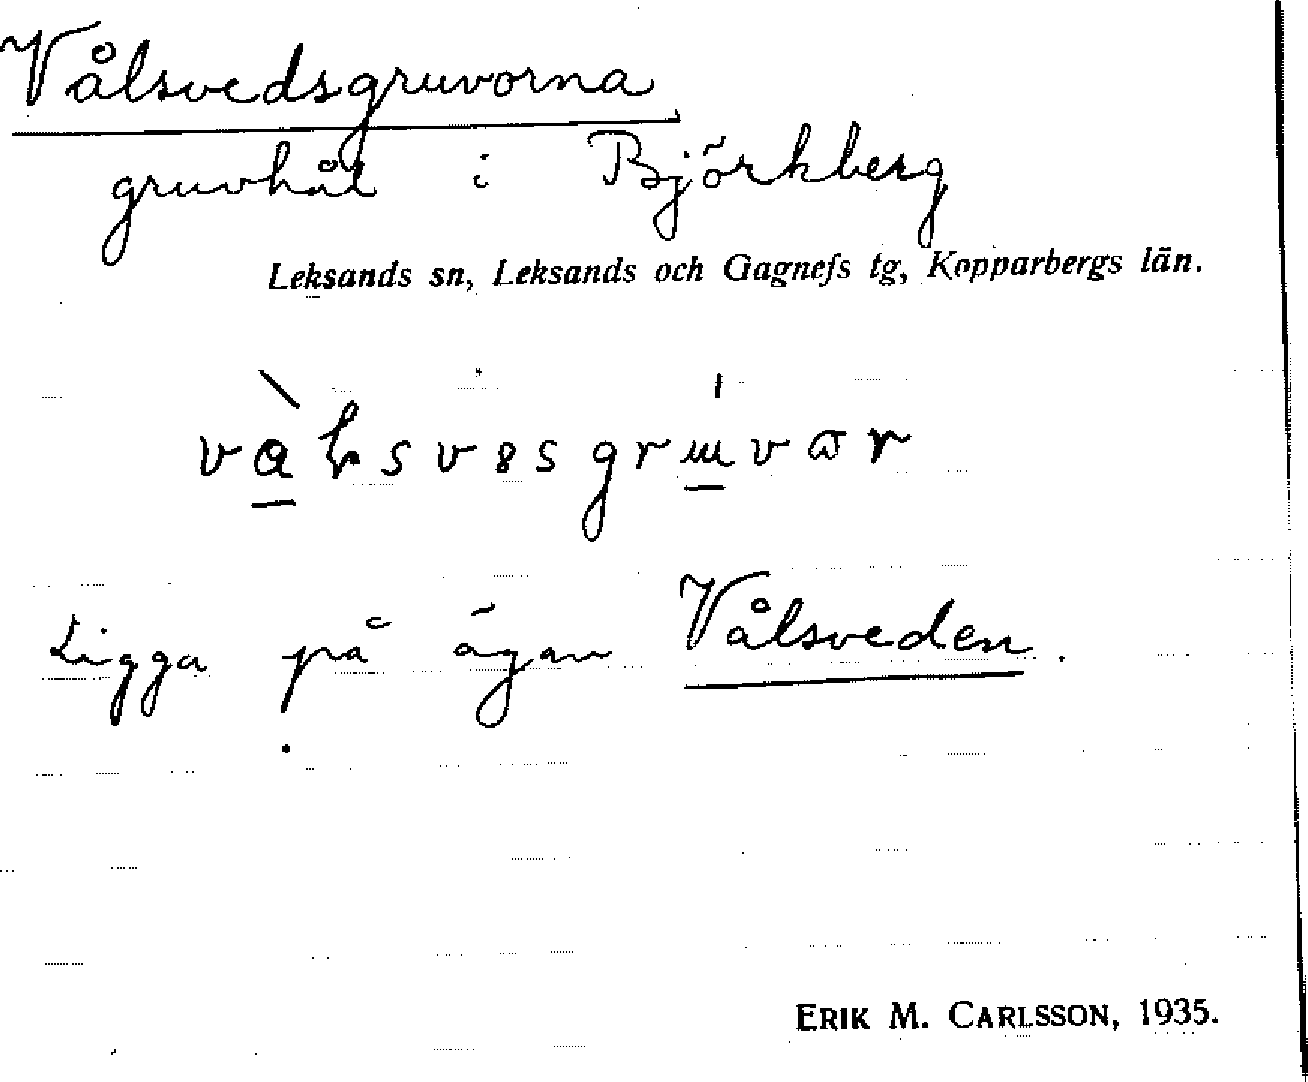 Vålsvedsgruvorna
gruvhål i Björkberg
Leksands sn, Leksands och Gagnefs tg, Kopparbergs län.
Ligga på ägan Vålsveden.
ERIK M. CARLSSON, 1935.